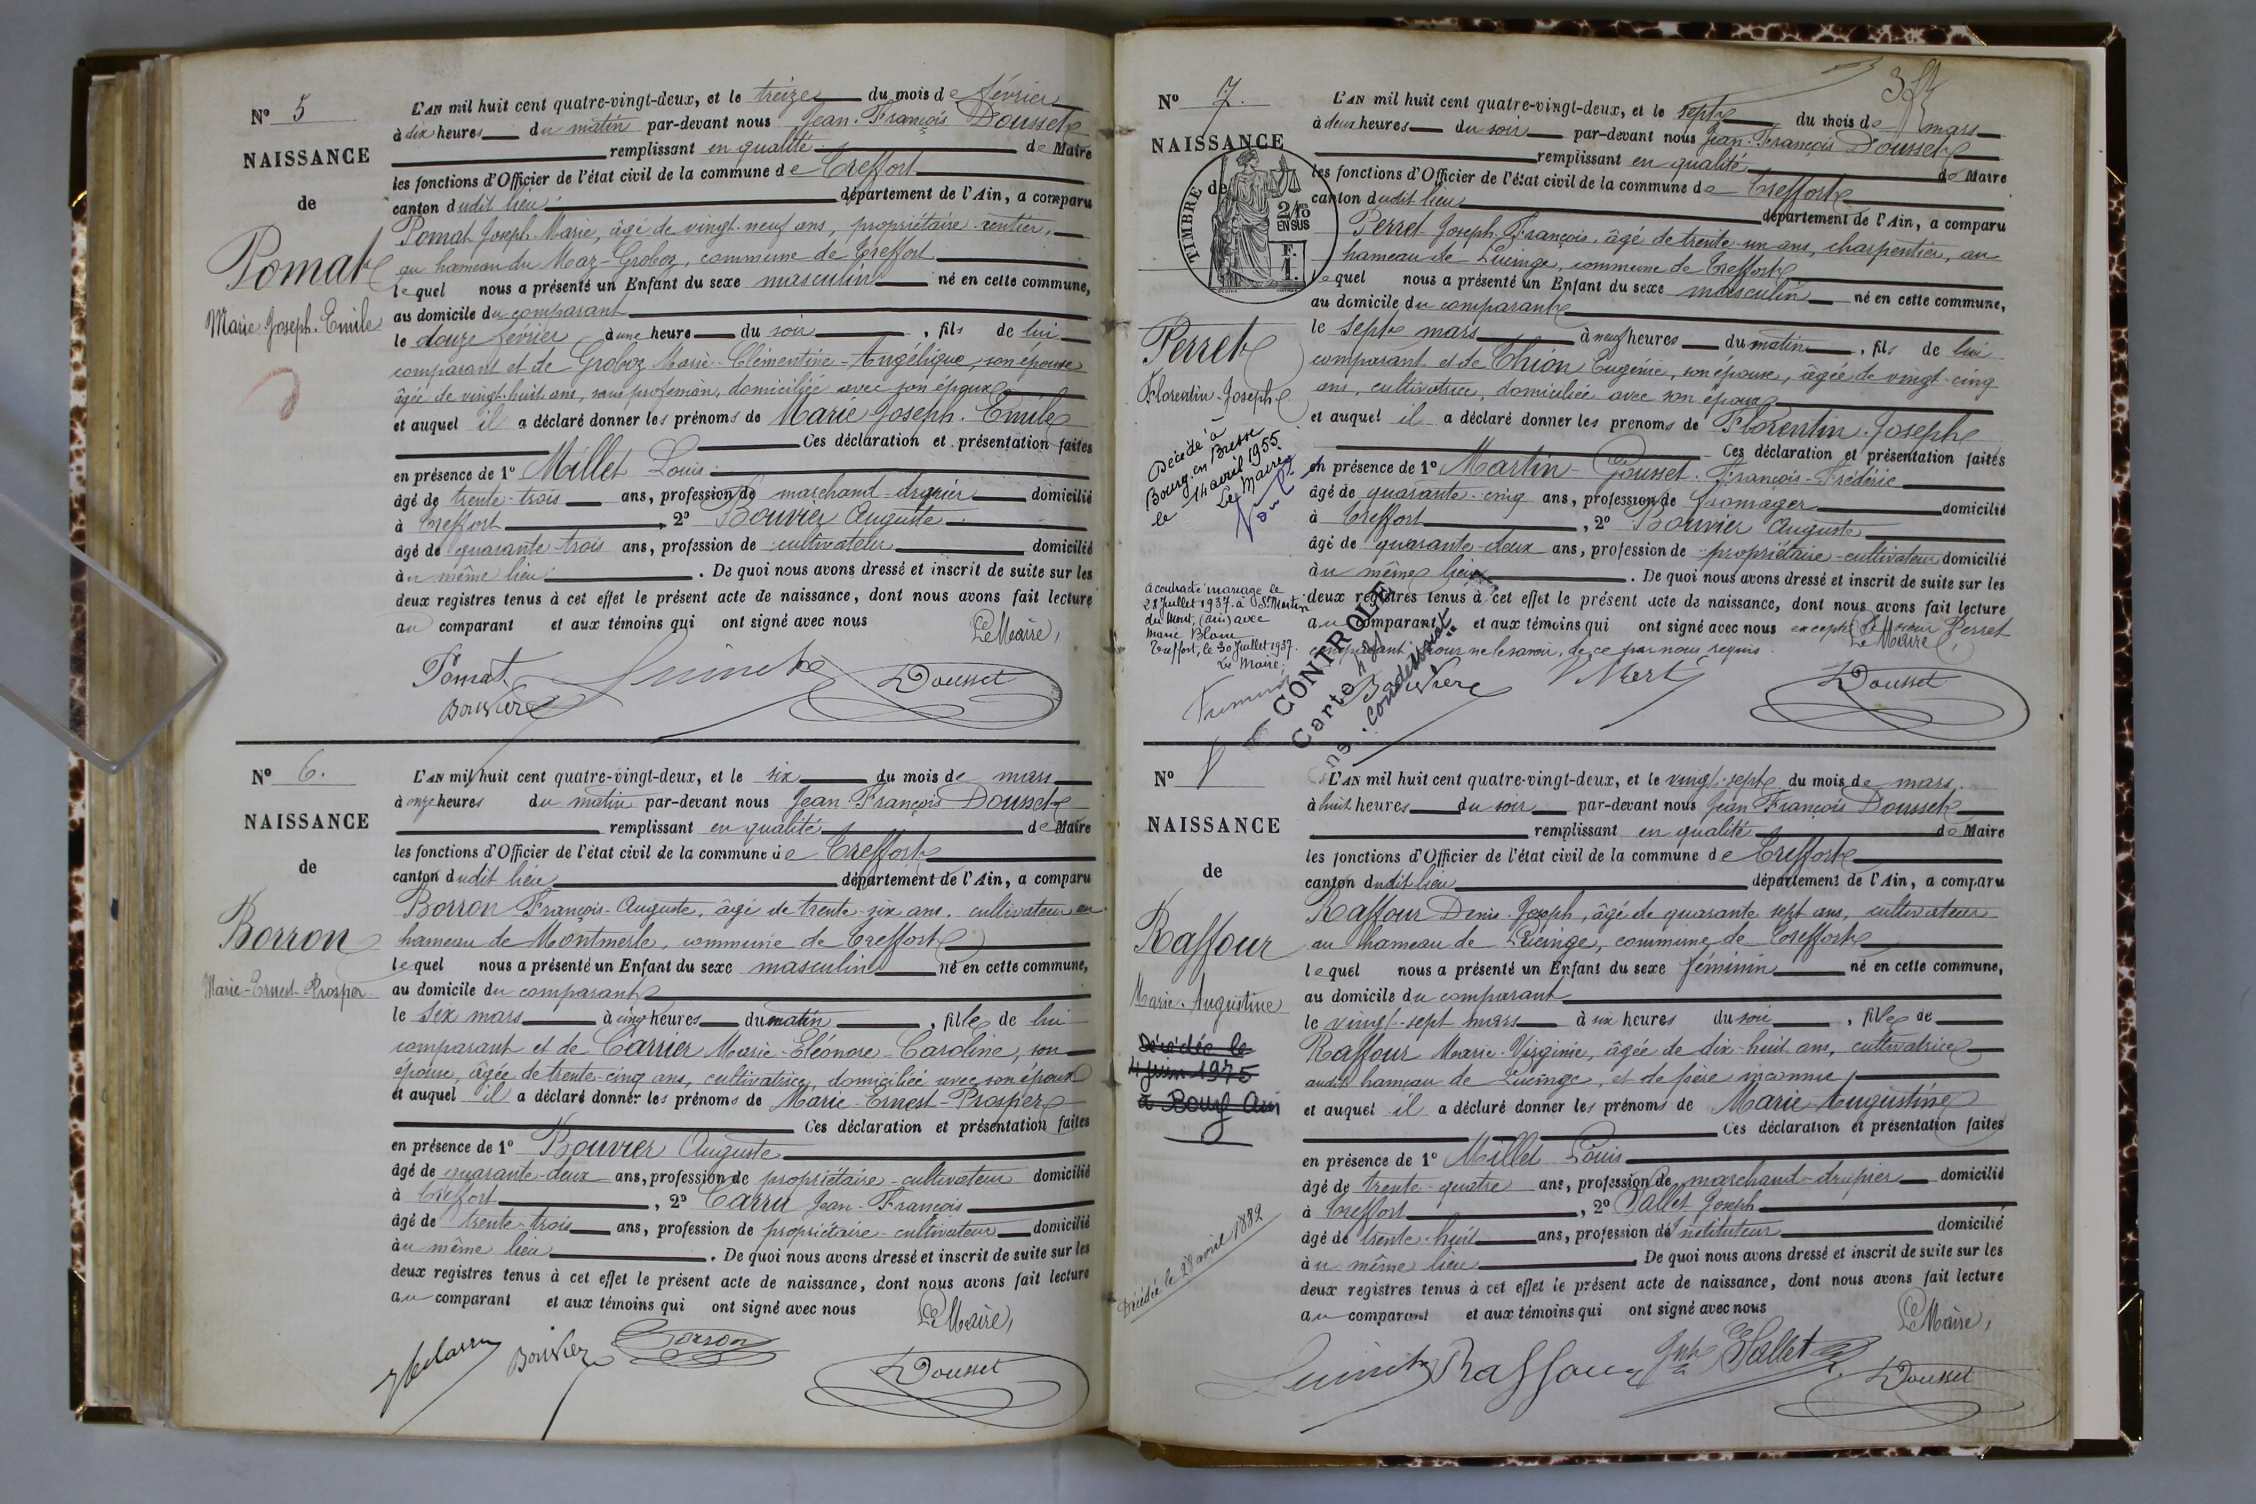 Nº 5
NAISSANCE
de
Pomat
Marie-Joseph-Emile
L'AN mil huit cent quatre-vingt-deux, et le treize du mois de février
à dix heures du matin par-devant nous Jean-François Dousset
remplissant en qualité de Maire
les fonctions d'Officier de l'état civil de la commune de Treffort
canton dudit lieu département de l'Ain, a comparu
Pomat Joseph-Marie, âgé de vingt-neuf ans, propriétaire-rentier,
au hameau du Maz-Groboz, commune de Treffort
lequel nous a présenté un Enfant du sexe masculin né en cette commune,
au domicile du comparant
le douze février à une heure du soir, fils de lui
comparant et de Groboz Marie-Clémentine-Angélique, son épouse
âgée de vingt-huit ans, sans profession, domiciliée avec son époux
et auquel il a déclaré donner les prénoms de Marie Joseph-Emile
Ces déclaration et présentation faites
en présence de 1º Millet Louis
âgé de trente-trois ans, profession de marchand-drapier domicilié
à Treffort, 2º Bouvier Auguste
âgé de quarante-trois ans, profession de cultivateur domicilié
au même lieu. De quoi nous avons dressé et inscrit de suite sur les
deux registres tenus à cet effet le présent acte de naissance, dont nous avons fait lecture
au comparant et aux témoins qui ont signé avec nous
Le Maire,
Pomat
Bouvier
Dousset
Nº 6.
NAISSANCE
de
Borron
Marie-Ernest-Prosper
L'AN mil huit cent quatre-vingt-deux, et le six du mois de mars
à onze heures du matin par-devant nous Jean-François Dousset
remplissant en qualité de Maire
les fonctions d'Officier de l'état civil de la commune de Treffort
canton dudit lieu département de l'Ain, a comparu
Borron François-Auguste, âgé de trente-six ans, cultivateur au
hameau de Montmerle, commune de Treffort
lequel nous a présenté un Enfant du sexe masculin né en cette commune,
au domicile du comparant
le six mars à cinq heures du matin, fille de lui
comparant et de Carrier Marie-Eléonore-Caroline, son
épouse, âgée de trente-cinq ans, cultivatrice, domiciliée avec son époux
et auquel il a déclaré donner les prénoms de Marie-Ernest-Prosper
Ces déclaration et présentation faites
en présence de 1º Bouvier Auguste
âgé de quarante-deux ans, profession de propriétaire-cultivateur domicilié
à Treffort, 2º Carru Jean-François
âgé de trente-trois ans, profession de propriétaire-cultivateur domicilié
au même lieu. De quoi nous avons dressé et inscrit de suite sur les
deux registres tenus à cet effet le présent acte de naissance, dont nous avons fait lecture
au comparant et aux témoins qui ont signé avec nous
Le Maire,
Bouvier
Borron
Dousset
Nº 7.
NAISSANCE
de
TIMBRE
2/10 EN SUS
F.
1.
Perret
Florentin-Joseph
Décédé à
Bourg en Bresse
le 14 avril 1955
Le Maire
a contracté mariage le
28 Juillet 1937 à St Martin
du Mont (ain) avec
Marie Blanc
Treffort, le 30 Juillet 1937.
Le Maire:
L'AN mil huit cent quatre-vingt-deux, et le sept du mois de mars
à deux heures du soir par-devant nous Jean-François Dousset
remplissant en qualité de Maire
les fonctions d'Officier de l'état civil de la commune de Treffort
canton dudit lieu département de l'Ain, a comparu
Perret Joseph-François, âgé de trente-un ans, charpentier, au
hameau de Lucinge, commune de Treffort
lequel nous a présenté un Enfant du sexe masculin né en cette commune,
au domicile du comparant
le sept mars à neuf heures du matin, fils de lui
comparant et de Chion Eugénie, son épouse, âgée de vingt-cinq
ans, cultivatrice, domiciliée avec son époux
et auquel il a déclaré donner les prénoms de Florentin-Joseph
Ces déclaration et présentation faites
en présence de 1º Martin-Gousset François-Frédéric
âgé de quarante-cinq ans, profession de fromager domicilié
à Treffort, 2º Bouvier Auguste
âgé de quarante-deux ans, profession de propriétaire-cultivateur domicilié
au même lieu. De quoi nous avons dressé et inscrit de suite sur les
deux registres tenus à cet effet le présent acte de naissance, dont nous avons fait lecture
au comparant et aux témoins qui ont signé avec nous excepté Perret
comparant pour ne le savoir, de ce par nous requis.
Le Maire,
CONTROLE
Carte
Bouvier
Dousset
Nº 8
NAISSANCE
de
Raffour
Marie-Augustine
Décédée le
4 juin 1975
à Bourg Ain
Décédée le 28 avril 1882
L'AN mil huit cent quatre-vingt-deux, et le vingt-sept du mois de mars
à huit heures du soir par-devant nous Jean François Dousset
remplissant en qualité de Maire
les fonctions d'Officier de l'état civil de la commune de Treffort
canton dudit lieu département de l'Ain, a comparu
Raffour Denis-Joseph, âgé de quarante sept ans, cultivateur
au hameau de Lucinge, commune de Treffort
lequel nous a présenté un Enfant du sexe féminin né en cette commune,
au domicile du comparant
le vingt-sept mars à six heures du soir, fille de
Raffour Marie-Virginie, âgée de dix-huit ans, cultivatrice
audit hameau de Lucinge, et de père inconnu
et auquel il a déclaré donner les prénoms de Marie-Augustine
Ces déclaration et présentation faites
en présence de 1º Millet Louis
âgé de trente-quatre ans, profession de marchand-drapier domicilié
à Treffort, 2º Pallet Joseph
âgé de trente-huit ans, profession d'instituteur domicilié
au même lieu. De quoi nous avons dressé et inscrit de suite sur les
deux registres tenus à cet effet le présent acte de naissance, dont nous avons fait lecture
au comparant et aux témoins qui ont signé avec nous
Le Maire,
Raffour
Pallet
Dousset